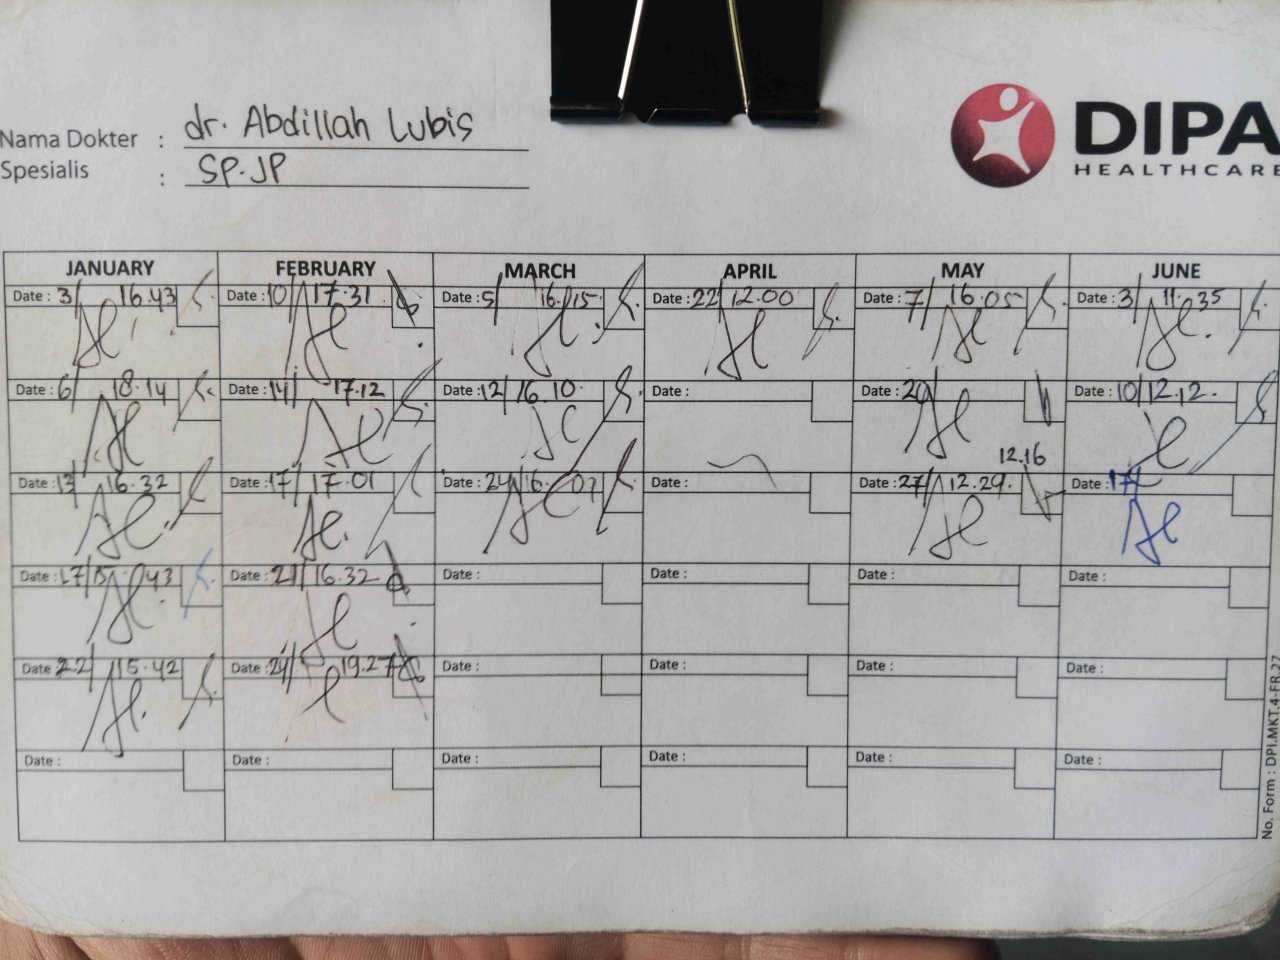 Nama Dokter : dr. Abdillah Lubis
Spesialis : SP.JP
DIPA
HEALTHCARE
JANUARY FEBRUARY MARCH APRIL MAY JUNE
Date : 3/ 16.43 Date : 10/ 17.31 Date : 5/ 16.15 Date : 22/ 12.00 Date : 7/ 16.05 Date : 3/ 11.35
Date : 6/ 18.14 Date : 14/ 17.12 Date : 12/ 16.10 Date : Date : 20/ Date : 10/ 12.12.
12.16
Date : 13/ 16.32 Date : 17/ 17.01 Date : 24/ 16.07 Date : Date : 27/ 12.29. Date : 17/
Date : 17/ 15.43 Date : 21/ 16.32 Date : Date : Date : Date :
Date : 22/ 15.42 Date : 24/ 19.27 Date : Date : Date : Date :
Date : Date : Date : Date : Date : Date :
No. Form : DPI.MKT.4-FR.27